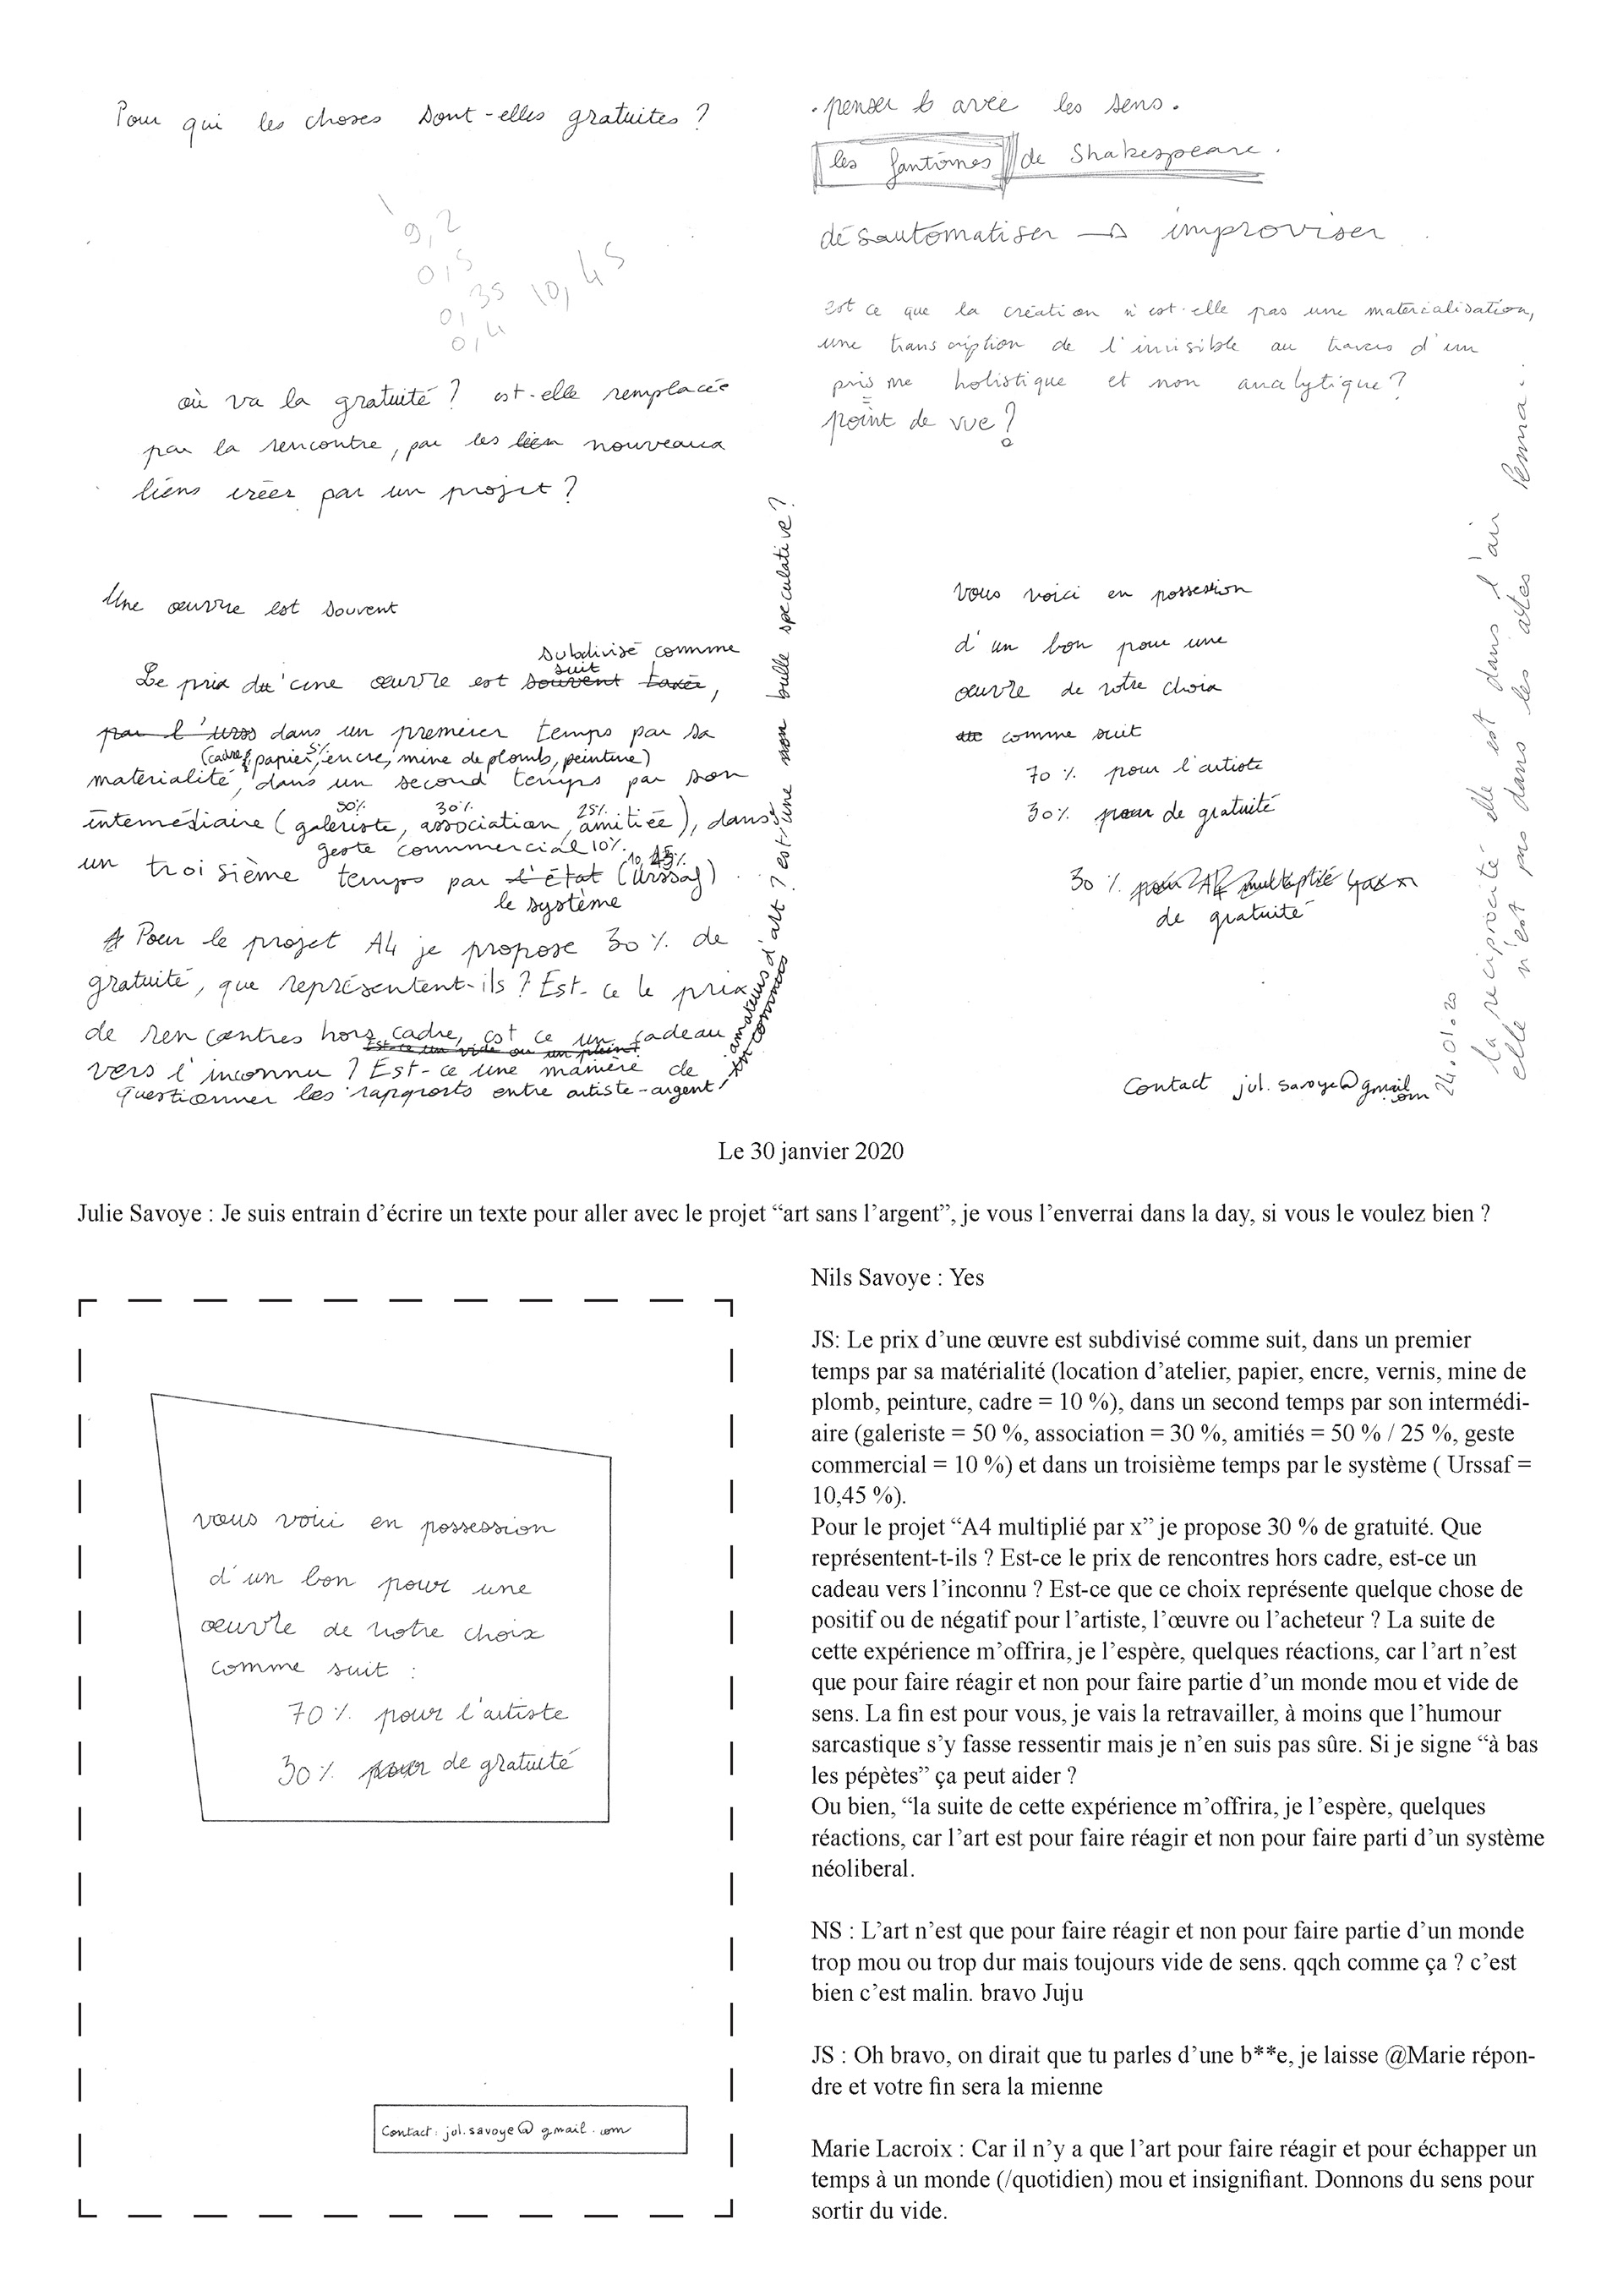 Pour qui les choses sont-elles gratuites ?
9,2
0,5
0,35 10,45
0,4
où va la gratuité ? est-elle remplacée
par la rencontre, par les lien nouveaux
liens créer par un projet ?
Une œuvre est souvent
subdivisé comme
suit
Le prix du'une œuvre est souvent taxée,
par l'urss dans un premier temps par sa
(cadre, papier, 5% encre, mine de plomb, peinture)
matérialité, dans un second temps par son
50% 30% 25%
intemédiaire (galeriste, association, amitiée), dans
geste commmercial 10%.
10,45%
un troisième temps par l'état (Urssaf)
le système
Pour le projet A4 je propose 30 % de
gratuité, que représentent-ils ? Est-ce le prix
de rencontres hors cadre, est ce un cadeau
Est ce un vide ou un plein
vers l'inconnu ? Est-ce une manière de
questionner les rapports entre artiste-argent/
amateurs d'art ? est une non bulle speculative ?
. penser avec les sens.
les fantômes de Shakespeare.
désautomatiser → improviser
Est ce que la création n'est-elle pas une matérialisation,
une transcription de l'invisible au travers d'un
prisme holistique et non analytique ?
point de vue ?
Vous voici en possesion
d'un bon pour une
œuvre de votre choix
comme suit
70 % pour l'artiste
30% pour de gratuité
30 % pour A4 multiplié par x
de gratuité
Contact jol.savoye@gmail.com
24.01.20
la reciprocité elle est dans l'air
elle n'est pas dans les actes
Le 30 janvier 2020
Julie Savoye : Je suis entrain d’écrire un texte pour aller avec le projet “art sans l’argent”, je vous l’enverrai dans la day, si vous le voulez bien ?
vous voici en possession
d'un bon pour une
œuvre de notre choix
comme suit :
70 % pour l'artiste
30 % pour de gratuité
Contact : jol.savoye@gmail.com
Nils Savoye : Yes
JS: Le prix d’une œuvre est subdivisé comme suit, dans un premier
temps par sa matérialité (location d’atelier, papier, encre, vernis, mine de
plomb, peinture, cadre = 10 %), dans un second temps par son intermédi-
aire (galeriste = 50 %, association = 30 %, amitiés = 50 % / 25 %, geste
commercial = 10 %) et dans un troisième temps par le système ( Urssaf =
10,45 %).
Pour le projet “A4 multiplié par x” je propose 30 % de gratuité. Que
représentent-t-ils ? Est-ce le prix de rencontres hors cadre, est-ce un
cadeau vers l’inconnu ? Est-ce que ce choix représente quelque chose de
positif ou de négatif pour l’artiste, l’œuvre ou l’acheteur ? La suite de
cette expérience m’offrira, je l’espère, quelques réactions, car l’art n’est
que pour faire réagir et non pour faire partie d’un monde mou et vide de
sens. La fin est pour vous, je vais la retravailler, à moins que l’humour
sarcastique s’y fasse ressentir mais je n’en suis pas sûre. Si je signe “à bas
les pépètes” ça peut aider ?
Ou bien, “la suite de cette expérience m’offrira, je l’espère, quelques
réactions, car l’art est pour faire réagir et non pour faire parti d’un système
néoliberal.
NS : L’art n’est que pour faire réagir et non pour faire partie d’un monde
trop mou ou trop dur mais toujours vide de sens. qqch comme ça ? c’est
bien c’est malin. bravo Juju
JS : Oh bravo, on dirait que tu parles d’une b**e, je laisse @Marie répon-
dre et votre fin sera la mienne
Marie Lacroix : Car il n’y a que l’art pour faire réagir et pour échapper un
temps à un monde (/quotidien) mou et insignifiant. Donnons du sens pour
sortir du vide.